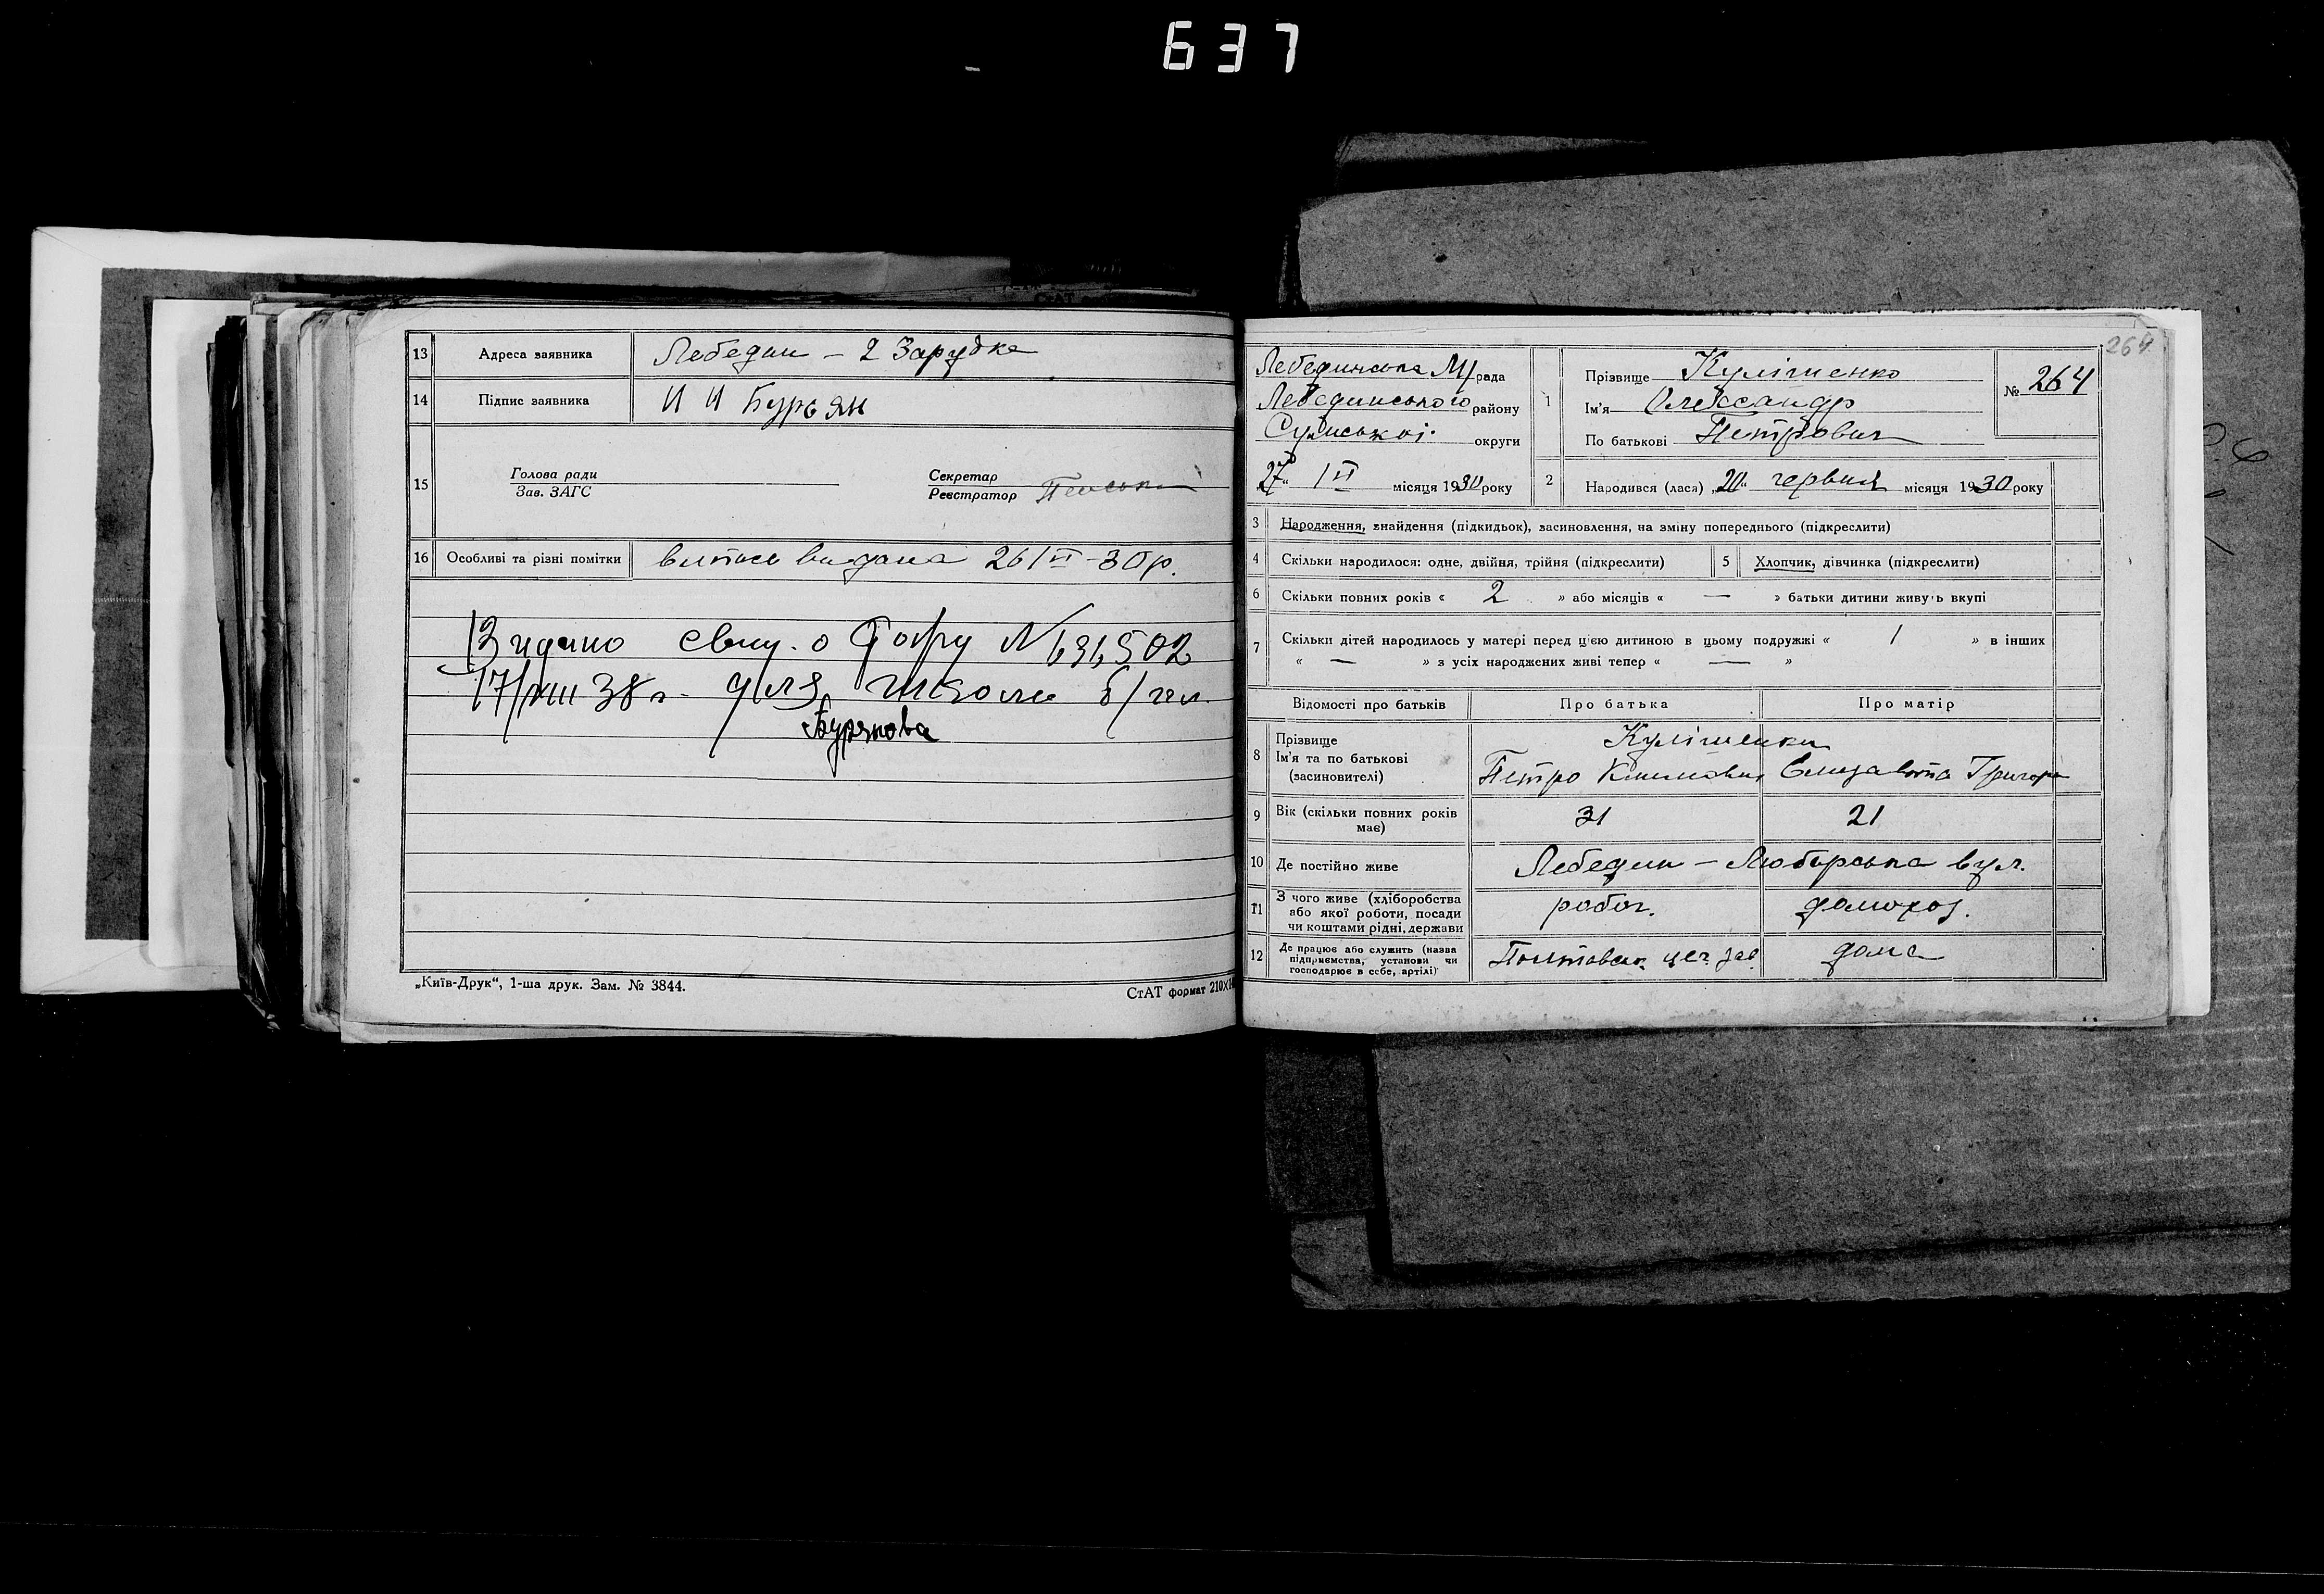 637
13 Адреса заявника Лебедин – 2 Зарудка
14 Підпис заявника И И Бурьян
15 Голова ради
Зав. ЗАГС
Секретар
Реєстратор
16 Особливі та різні помітки випись видана 26/VI-30 р.
Видано свид. о
17/VIII 38 р. для школи
Бурякова
„Київ-Друк“, 1-ша друк. Зам. № 3844.
СтАТ формат 210×
264
Лебединська М/рада
Лебединського району
Сумської округи
27 / VI місяця 1930 року
1 Прізвище Кулішенко
Ім'я Олександр
По батькові Петрович
№ 264
2 Народився (лася) „20“ червня місяця 1930 року
3 Народження, знайдення (підкидьок), засиновлення, на зміну попереднього (підкреслити)
4 Скільки народилося: одне, двійня, трійня (підкреслити) 5 Хлопчик, дівчинка (підкреслити)
6 Скільки повних років « 2 » або місяців « — » батьки дитини живуть вкупі
7 Скільки дітей народилось у матері перед цією дитиною в цьому подружжі « 1 » в інших
« — » з усіх народжених живі тепер « — »
Відомості про батьків Про батька Про матір
8 Прізвище
Ім'я та по батькові
(засновителі)
Кулішенки
Петро Климович Елизавета Григор
9 Вік (скільки повних років
має)
31 21
10 Де постійно живе Лебедин – Люборська вул.
11 З чого живе (хліборобства
або якої роботи, посади
чи коштами рідні, держави
робоч. домохоз.
12 Де працює або служить (назва
підприємства, установи чи
господарює в себе, артілі)
дома